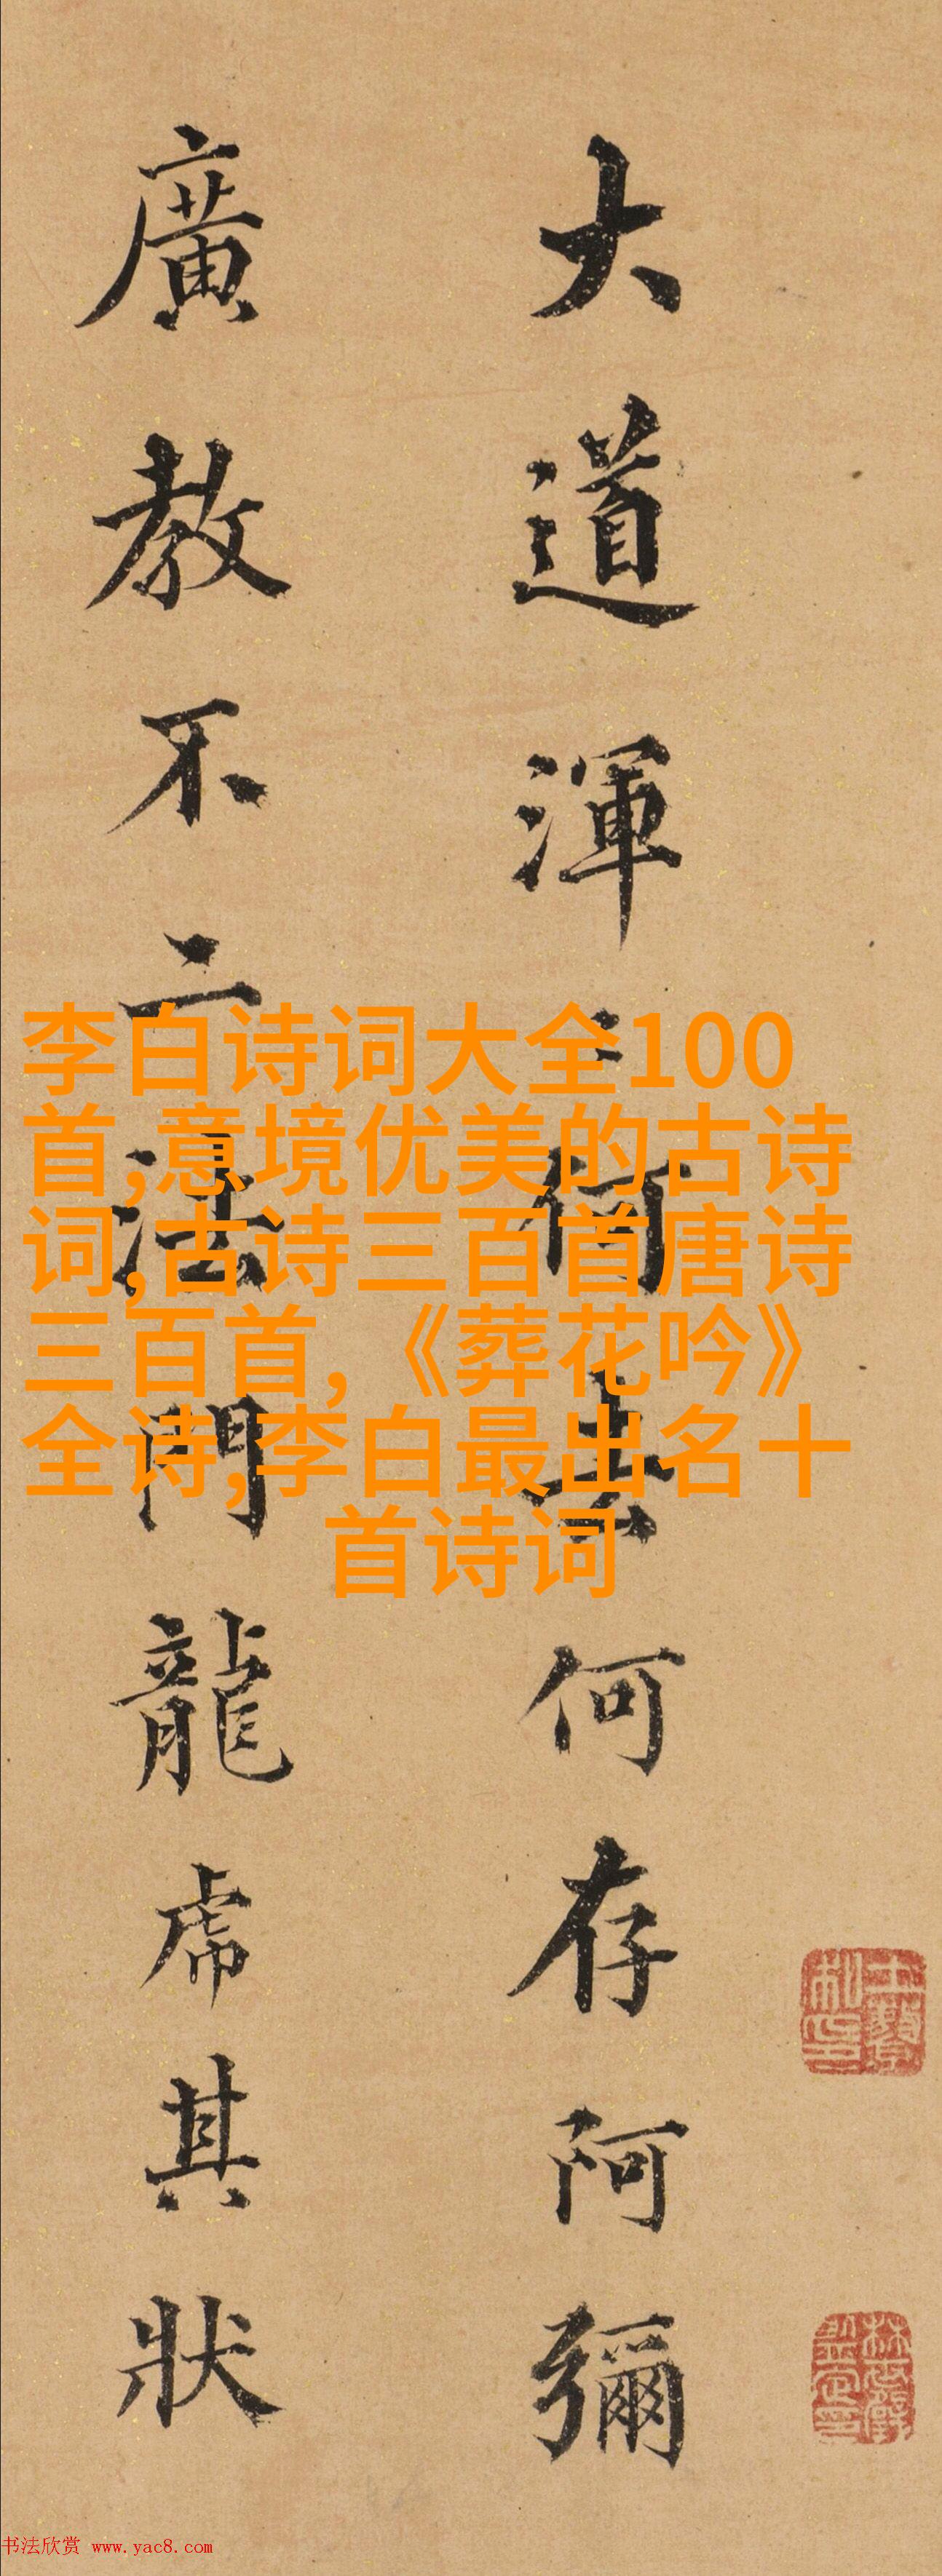 大道渾〻何去何存阿彌
廣教不二法門龍虎其狀
李白诗词大全100
首,意境优美的古诗
词,古诗三百首唐诗
三百首,《葬花吟》
全诗,李白最出名十
首诗词
书法欣赏 www.yac8.com